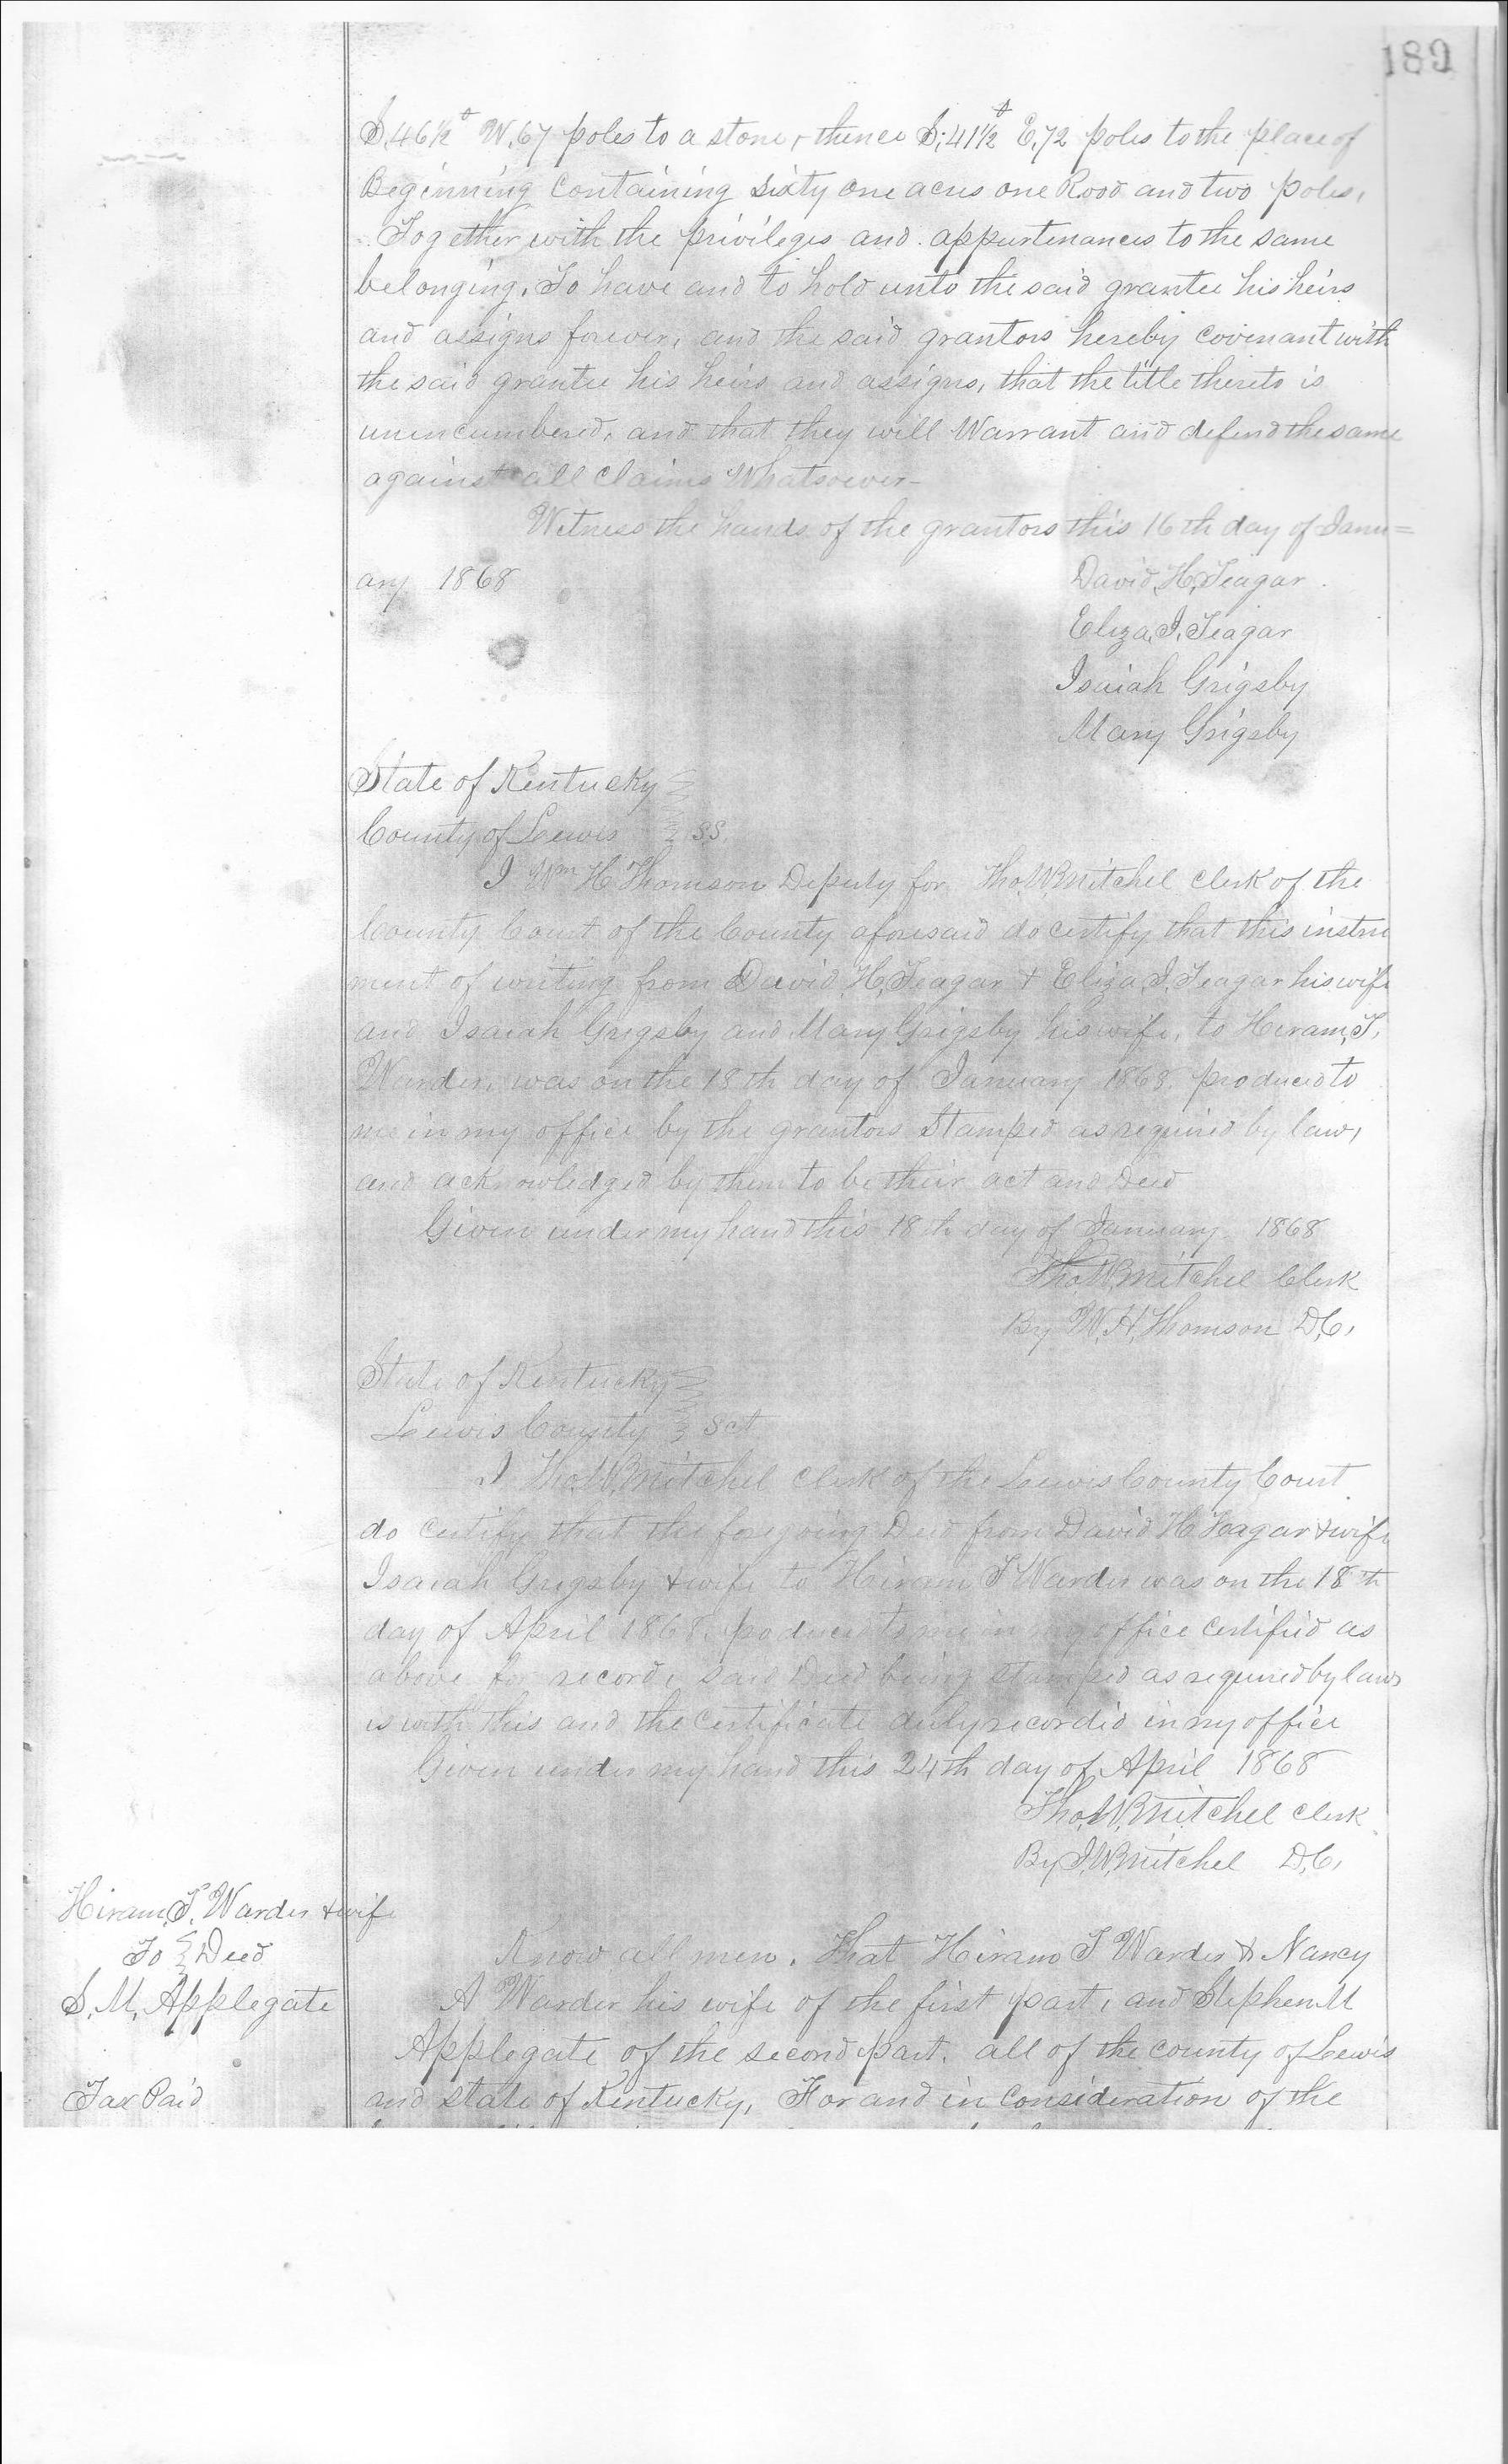 189
S. 46 1/2° W. 67 poles to a stone, thence S. 41 1/2° E. 72 poles to the place of
Beginning containing sixty one acres one Rood and two poles,
Together with the privileges and appurtenances to the same
belonging. To have and to hold unto the said grantee his heirs
and assigns forever, and the said grantors hereby covenant with
the said grantee his heirs and assigns, that the title thereto is
unencumbered, and that they will Warrant and defend the same
against all claims Whatsoever—
Witness the hands of the grantors this 16th day of Janu=
ary 1868
David, H, Teagar
Eliza, J, Teagar
Isaiah Grigsby
Mary Grigsby
State of Kentucky
County of Lewis SS
I Wm H Thomson Deputy for Tho, W, Mitchel Clerk of the
County Court of the County aforesaid do certify that this instru
ment of writing from David, H, Teagar & Eliza, J, Teagar his wife
and Isaiah Grigsby and Mary Grigsby his wife, to Hiram, T,
Warder, was on the 18th day of January 1868. produced to
me in my office by the grantors Stamped as required by law,
and acknowledged by them to be their act and Deed
Given under my hand this 18th day of January 1868
Tho, W, Mitchel Clerk
By W, H, Thomson D,C,
State of Kentucky
Lewis County Sct
I Tho, W, Mitchel Clerk of the Lewis County Court
do certify that the foregoing Deed from David H Teagar & wife
Isaiah Grigsby & wife to Hiram T Warder was on the 18th
day of April 1868. produced to me in my office certified as
above for record, said Deed being stamped as required by law
is with this and the certificate duly recorded in my office
Given under my hand this 24th day of April 1868
Tho, W, Mitchel Clerk
By J, W, Mitchel D,C,
Hiram, T, Warder & wife
To Deed
S, M, Applegate
Tax Paid
Know all men. That Hiram T Warder & Nancy
A Warder his wife of the first part, and Stephen M
Applegate of the second part. all of the county of Lewis
and state of Kentucky, For and in consideration of the